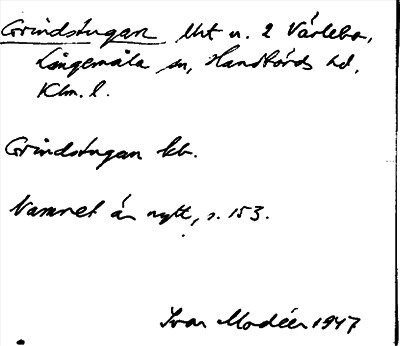 Grindstugan lht u. 2 Värlebo,
Långemåla sn, Handbörds hd,
Klm. l.
Grindstugan kb.
Namnet är nytt, s. 153.
Ivar Modéer 1947